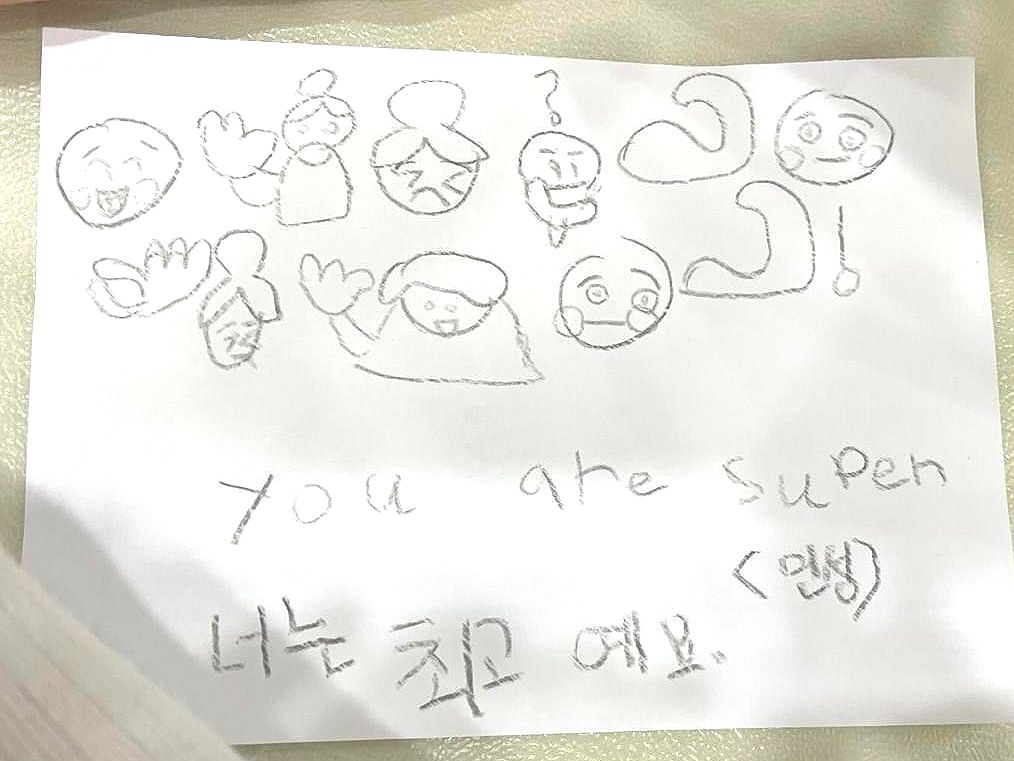 you are super
너는 최고 예요.